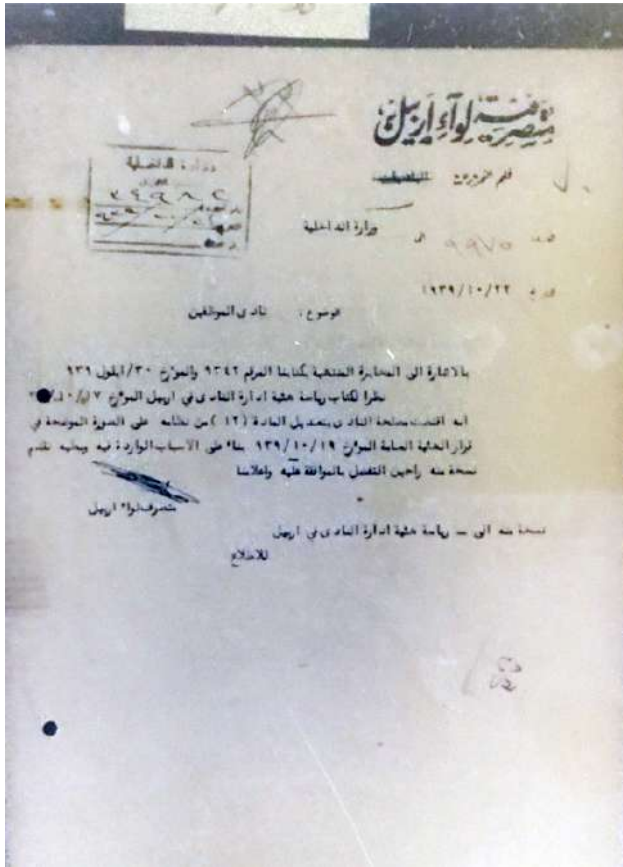 متصرفية لواء اربيل
قلم تحريرات
وزارة الداخلية
٣٤٩٨٢
العدد ٩٩٧٥ الى
وزارة الداخلية
١٩٣٩/١٠/٢٢
موضوع: نادى الموظفين
بالاشارة الى المخابرة المنتهية بكتابنا المرقم ٩٣٤٢ والمؤرخ ٣٠/ايلول ٩٣٩
نظرا لكتاب رياسة هئية ادارة النادى في اربيل المؤرخ
أنه اقتضت مصلحة النادى بتعديل المادة (١٢) من نظامه على الصورة الموضحة في
قرار الهئية العامة المؤرخ ٩٣٩/١٠/١٩ بناء على الاسباب الواردة فيه وعليه نقدم
نسخة منه راجين التفضل بالموافقة عليه واعلامنا
متصرف لواء اربيل
نسخة منه الى ــ رياسة هئية ادارة النادى في اربيل
للاطلاع